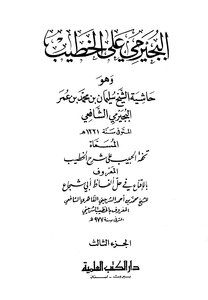 البجيرمي على الخطيب
وهو
حاشية الشيخ سليمان بن محمد بن عمر
البجيرمي الشافعي
المتوفى سنة ١٢٢١ هـ
المسماة
تحفة الحبيب على شرح الخطيب
المعروف
بالإقناع في حل ألفاظ أبي شجاع
للشيخ محمد بن أحمد الشربيني القاهري الشافعي
المعروف بالخطيب الشربيني
المتوفى سنة ٩٧٧ هـ
الجزء الثالث
دار الكتب العلمية
بيروت - لبنان